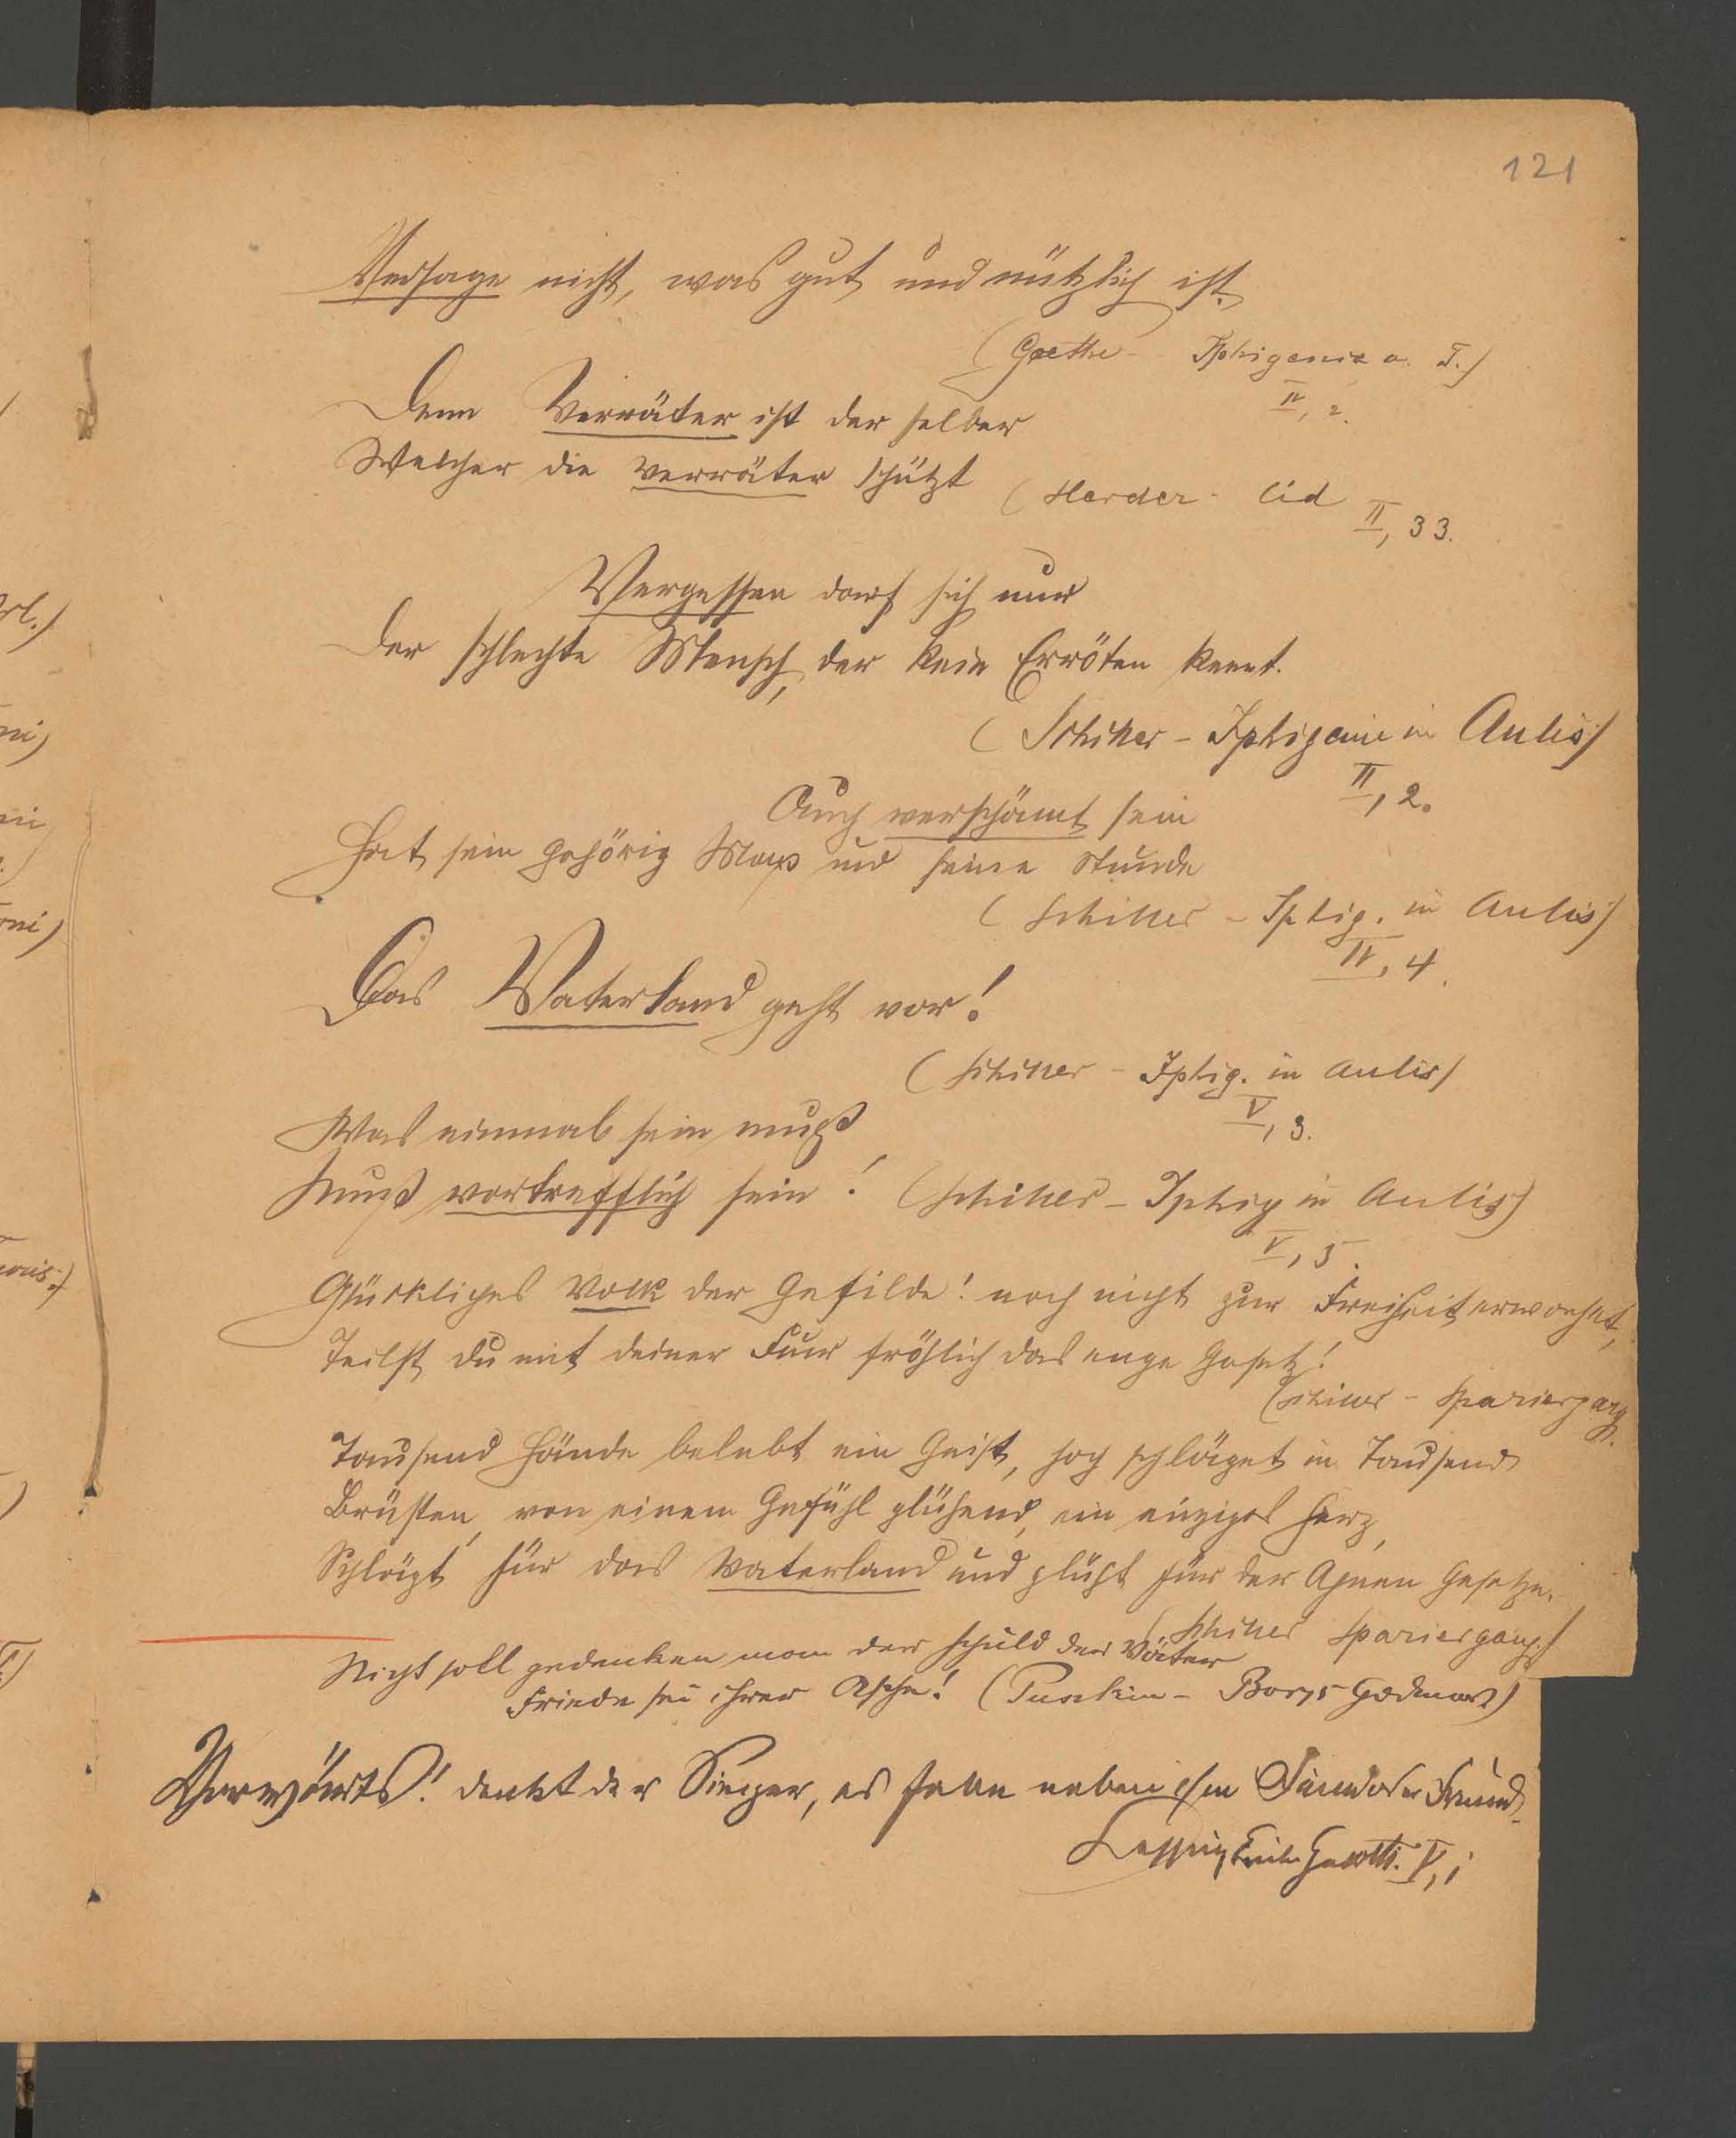 121
Versage nicht, was gut und nützlich ist.
(Goethe - Iphigenie a. T.)
II, 2.
Denn Verräter ist der selber
Welcher die Verräter schützt (Herder - Cid
II, 33.
Vergessen darf sich nur
Der schlechte Mensch, der kein Erröten kennt.
(Schiller - Iphigenie in Aulis)
II, 2.
Auch verschämt sein
Hat sein gehörig Mass und seine Stunde
(Schiller - Iphig. in Aulis)
II, 4.
Das Vaterland geht vor!
(Schiller - Iphig. in Aulis)
V, 3.
Was einmal sein muß
Muß vortrefflich sein! (Schiller - Iphig in Aulis)
V, 5.
Glückliches Volk der Gefilde! noch nicht zur Freiheit erwachet,
Teilst du mit deiner Flur fröhlich das enge Gesetz!
(Schiller - Spaziergang.
Tausend Hände belebt ein Geist, hoch schläget in Tausend
Brüsten, von einem Gefühl glühend, ein einziges Herz,
Schlägt für das Vaterland und glüht für der Ahnen Gesetze.
(Schiller Spaziergang.)
Nicht soll gedenken man der Schuld der Väter
Friede sei ihrer Asche! (Puschkin - Borys Godunow)
Vorwärts! denkt der Sieger, es falle neben ihm Feind oder Freund.
Lessing Emilia Galotti. V, 1